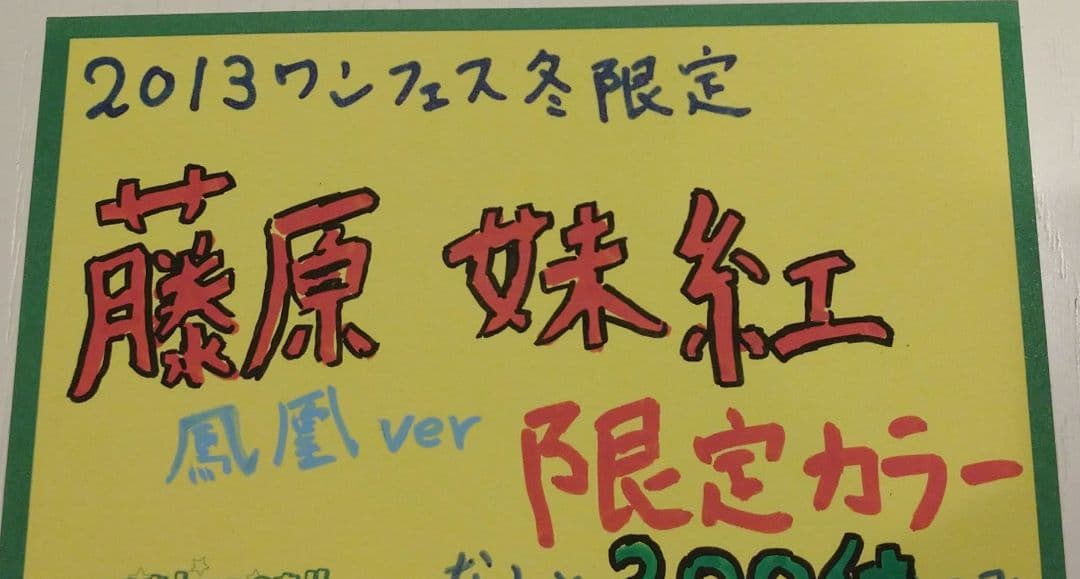 2013ワンフェス冬限定
藤原 妹紅
鳳凰 ver
限定カラー